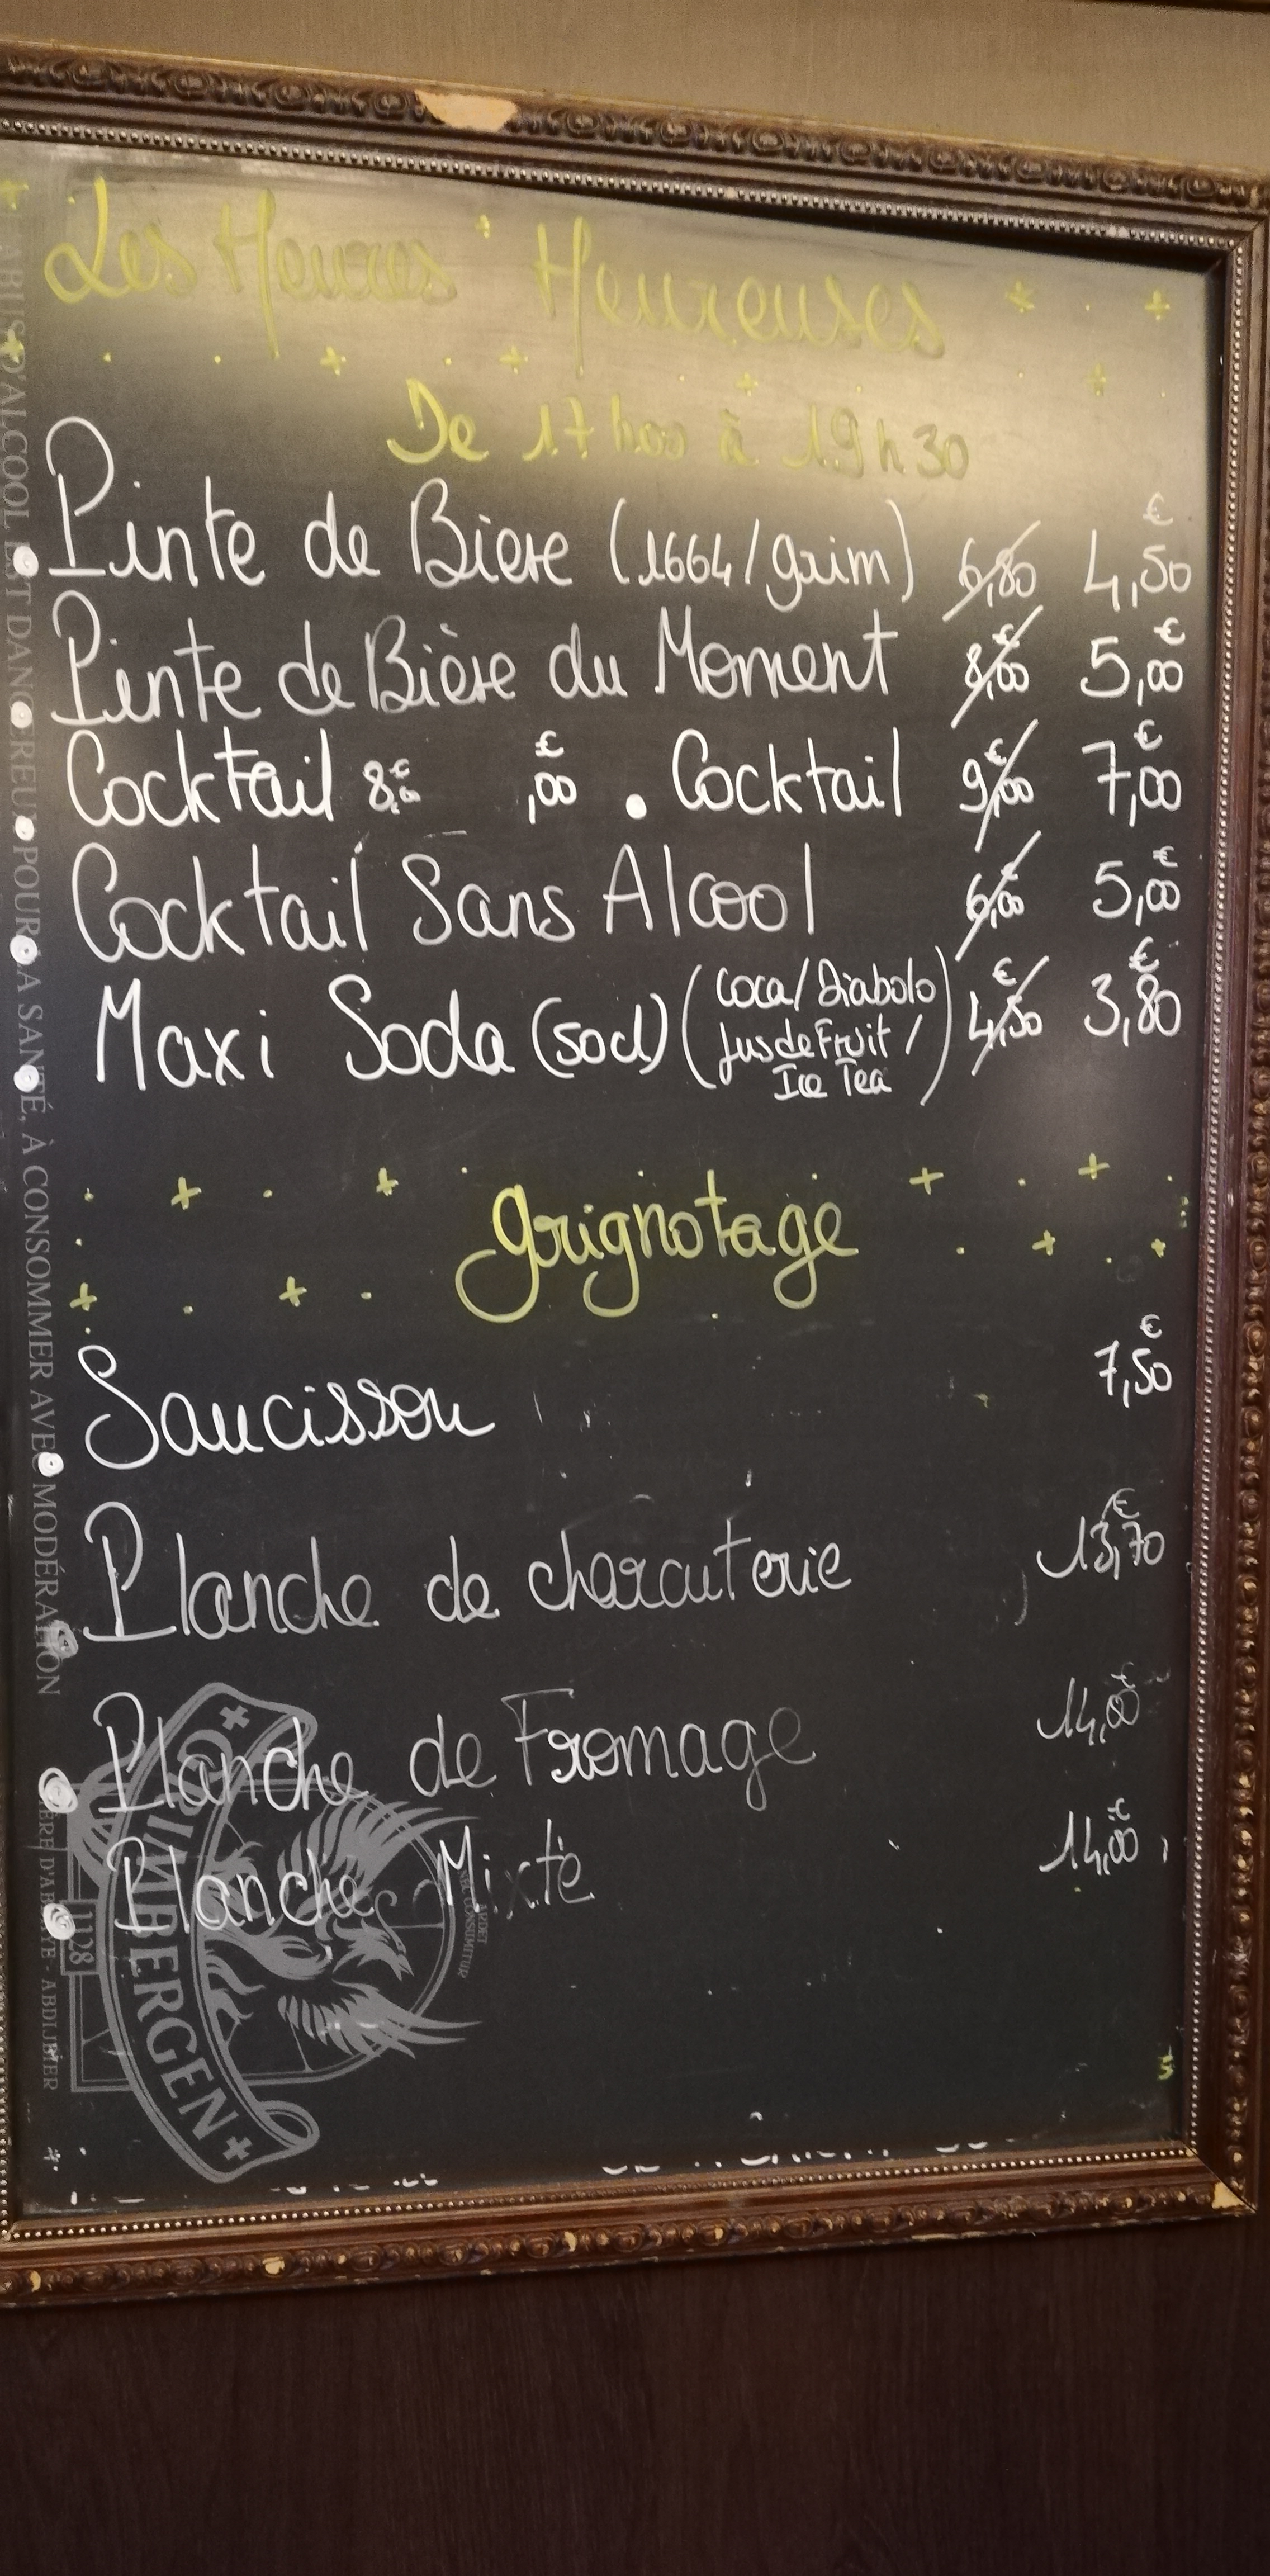 Les Heures Heureuses
De 17h00 à 19h30
Pinte de Biere (1664/grim) 6,80 4,50€
Pinte de Bière du Moment 8,00€ 5,00€
Cocktail 8,00€ ,00€ . Cocktail 9,00€ 7,00€
Cocktail Sans Alcool 6,00€ 5,00€
Maxi Soda (50cl) (Coca/Diabolo 4,50€ 3,80€
Jus de Fruit/
Ice Tea)
grignotage
Saucisson 7,50€
Planche de charcuterie 13,70€
Planche de Fromage 14,00€
Planche Mixte 14,00€
ABUS D'ALCOOL EST DANGEREUX POUR LA SANTÉ, À CONSOMMER AVEC MODÉRATION
GRIMBERGEN
1128
ARDET
NEC CONSUMITUR
BIÈRE D'ABBAYE - ABDIJBIER
5